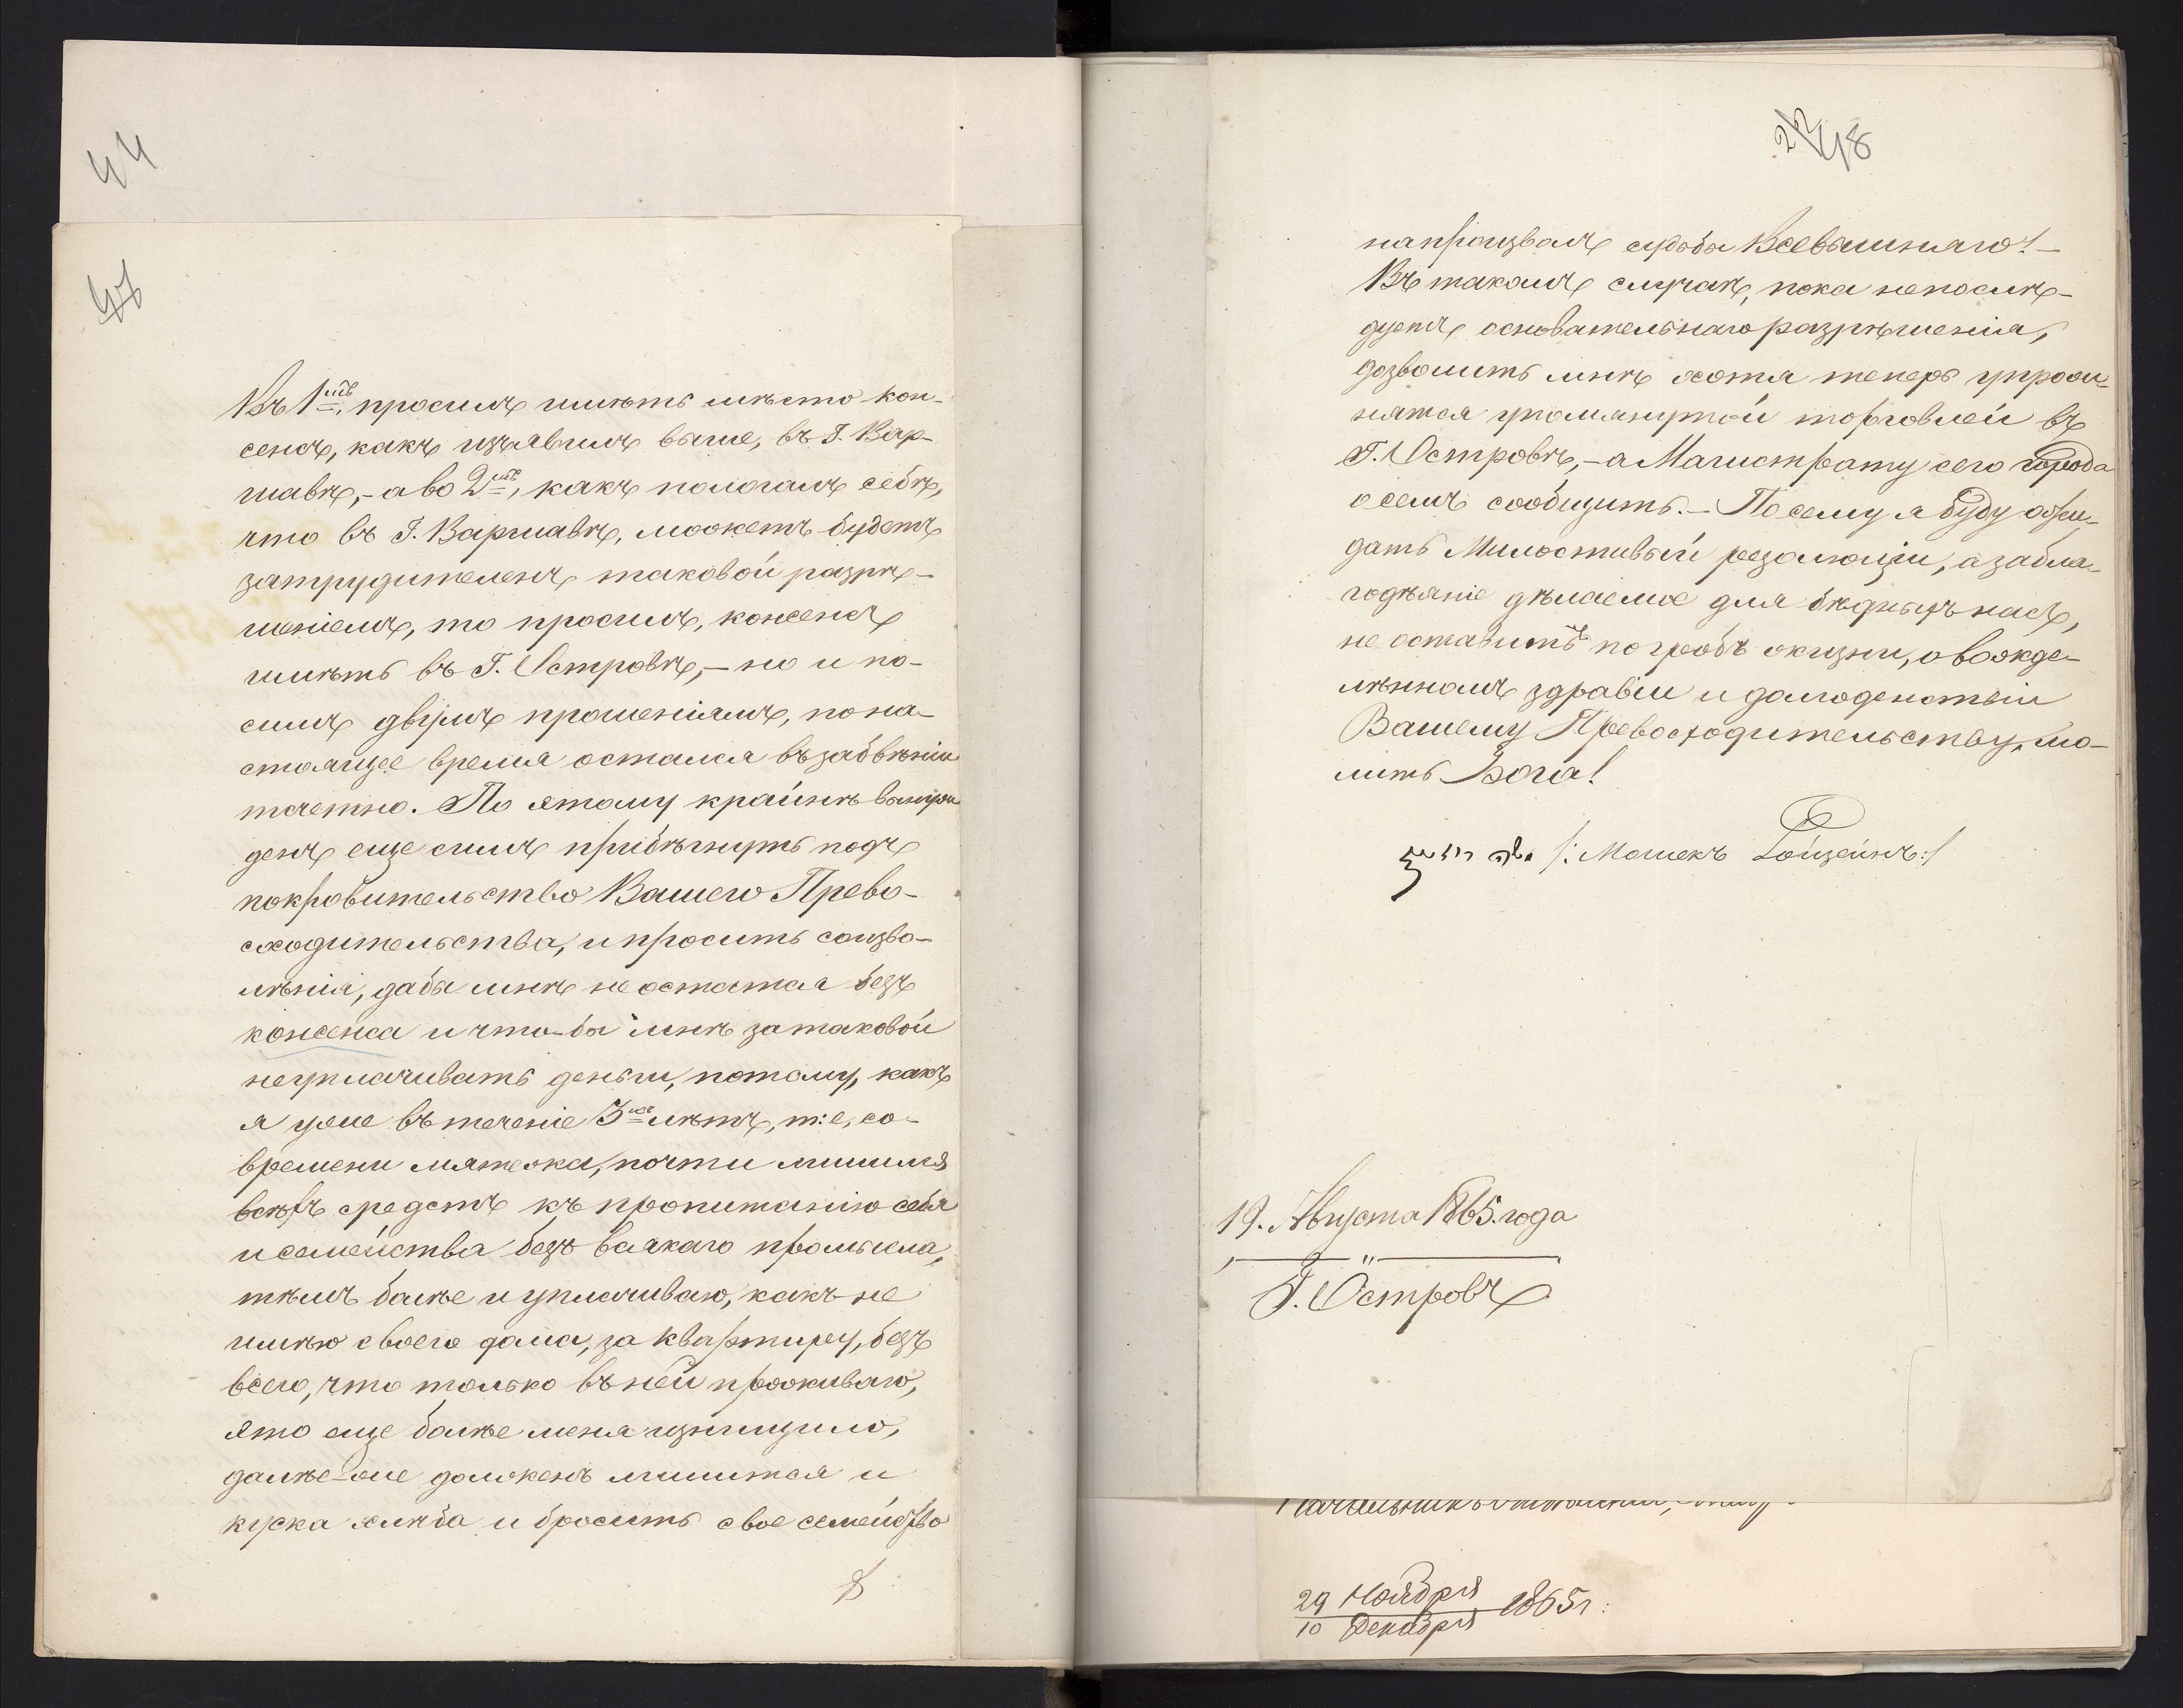 44
Въ 1хъ, просилъ имѣть мѣсто кон-
сенсъ, какъ изъявилъ выше, въ Г. Вар-
шавѣ,- а во 2хъ, какъ пологалъ себѣ,
что въ Г. Варшавѣ, можетъ будетъ
затрудителенъ таковой разрѣ-
шеніемъ, то просилъ, консенсъ
имѣть въ Г. Островѣ,- но и по-
симъ двумъ прошеніямъ, по на-
стоящее время остался въ забвѣніи
тщетно. По этому крайнѣ вынуж
денъ еще симъ прибѣгнуть подъ
покровительство Вашего Прево-
сходительства, и просить соизво-
лѣнія, дабы мнѣ не остатся безъ
консенса и что-бы мнѣ за таковой
неуплачивать деньги, потому, какъ
я уже въ теченіе 3хъ лѣтъ, т: е, со-
времени мятежа, почти лишился
всѣхъ средствъ къ пропитанію себя
и семейства безъ всякаго промысла,
тѣмъ болѣе и уплачиваю, какъ не
имѣю своего дома, за квартиру, безъ
всего, что только въ ней проживаю,
ято еще болѣе меня изнищило,
далѣе-же долженъ лишится и
куска хлѣба и бросить свое семейство
22
48
напроизволъ судьбы Всевышняго!-
Въ такомъ случаѣ, пока непослѣ-
дуетъ основательнаго разрѣшенія,
дозволить мнѣ хотя теперь упрож-
нятся упомянутой торговлей въ
Г. Островѣ,- а Магистрату сего города
о семъ сообщить.- По сему я буду ожи-
дать Милостивый резолюціи, а забла-
годѣяніе дѣлаемое для бѣдныхъ насъ,
не оставитъ погробъ жизни, о вожде-
лѣнномъ здравіи и долгоденствіи
Вашему Превосходительству, мо-
лить Бога!
/: Мошекъ Гойзейнъ:/
19. Августа 1865. года
Г. Островъ
29 Ноября
10 Декабря 1865 г: